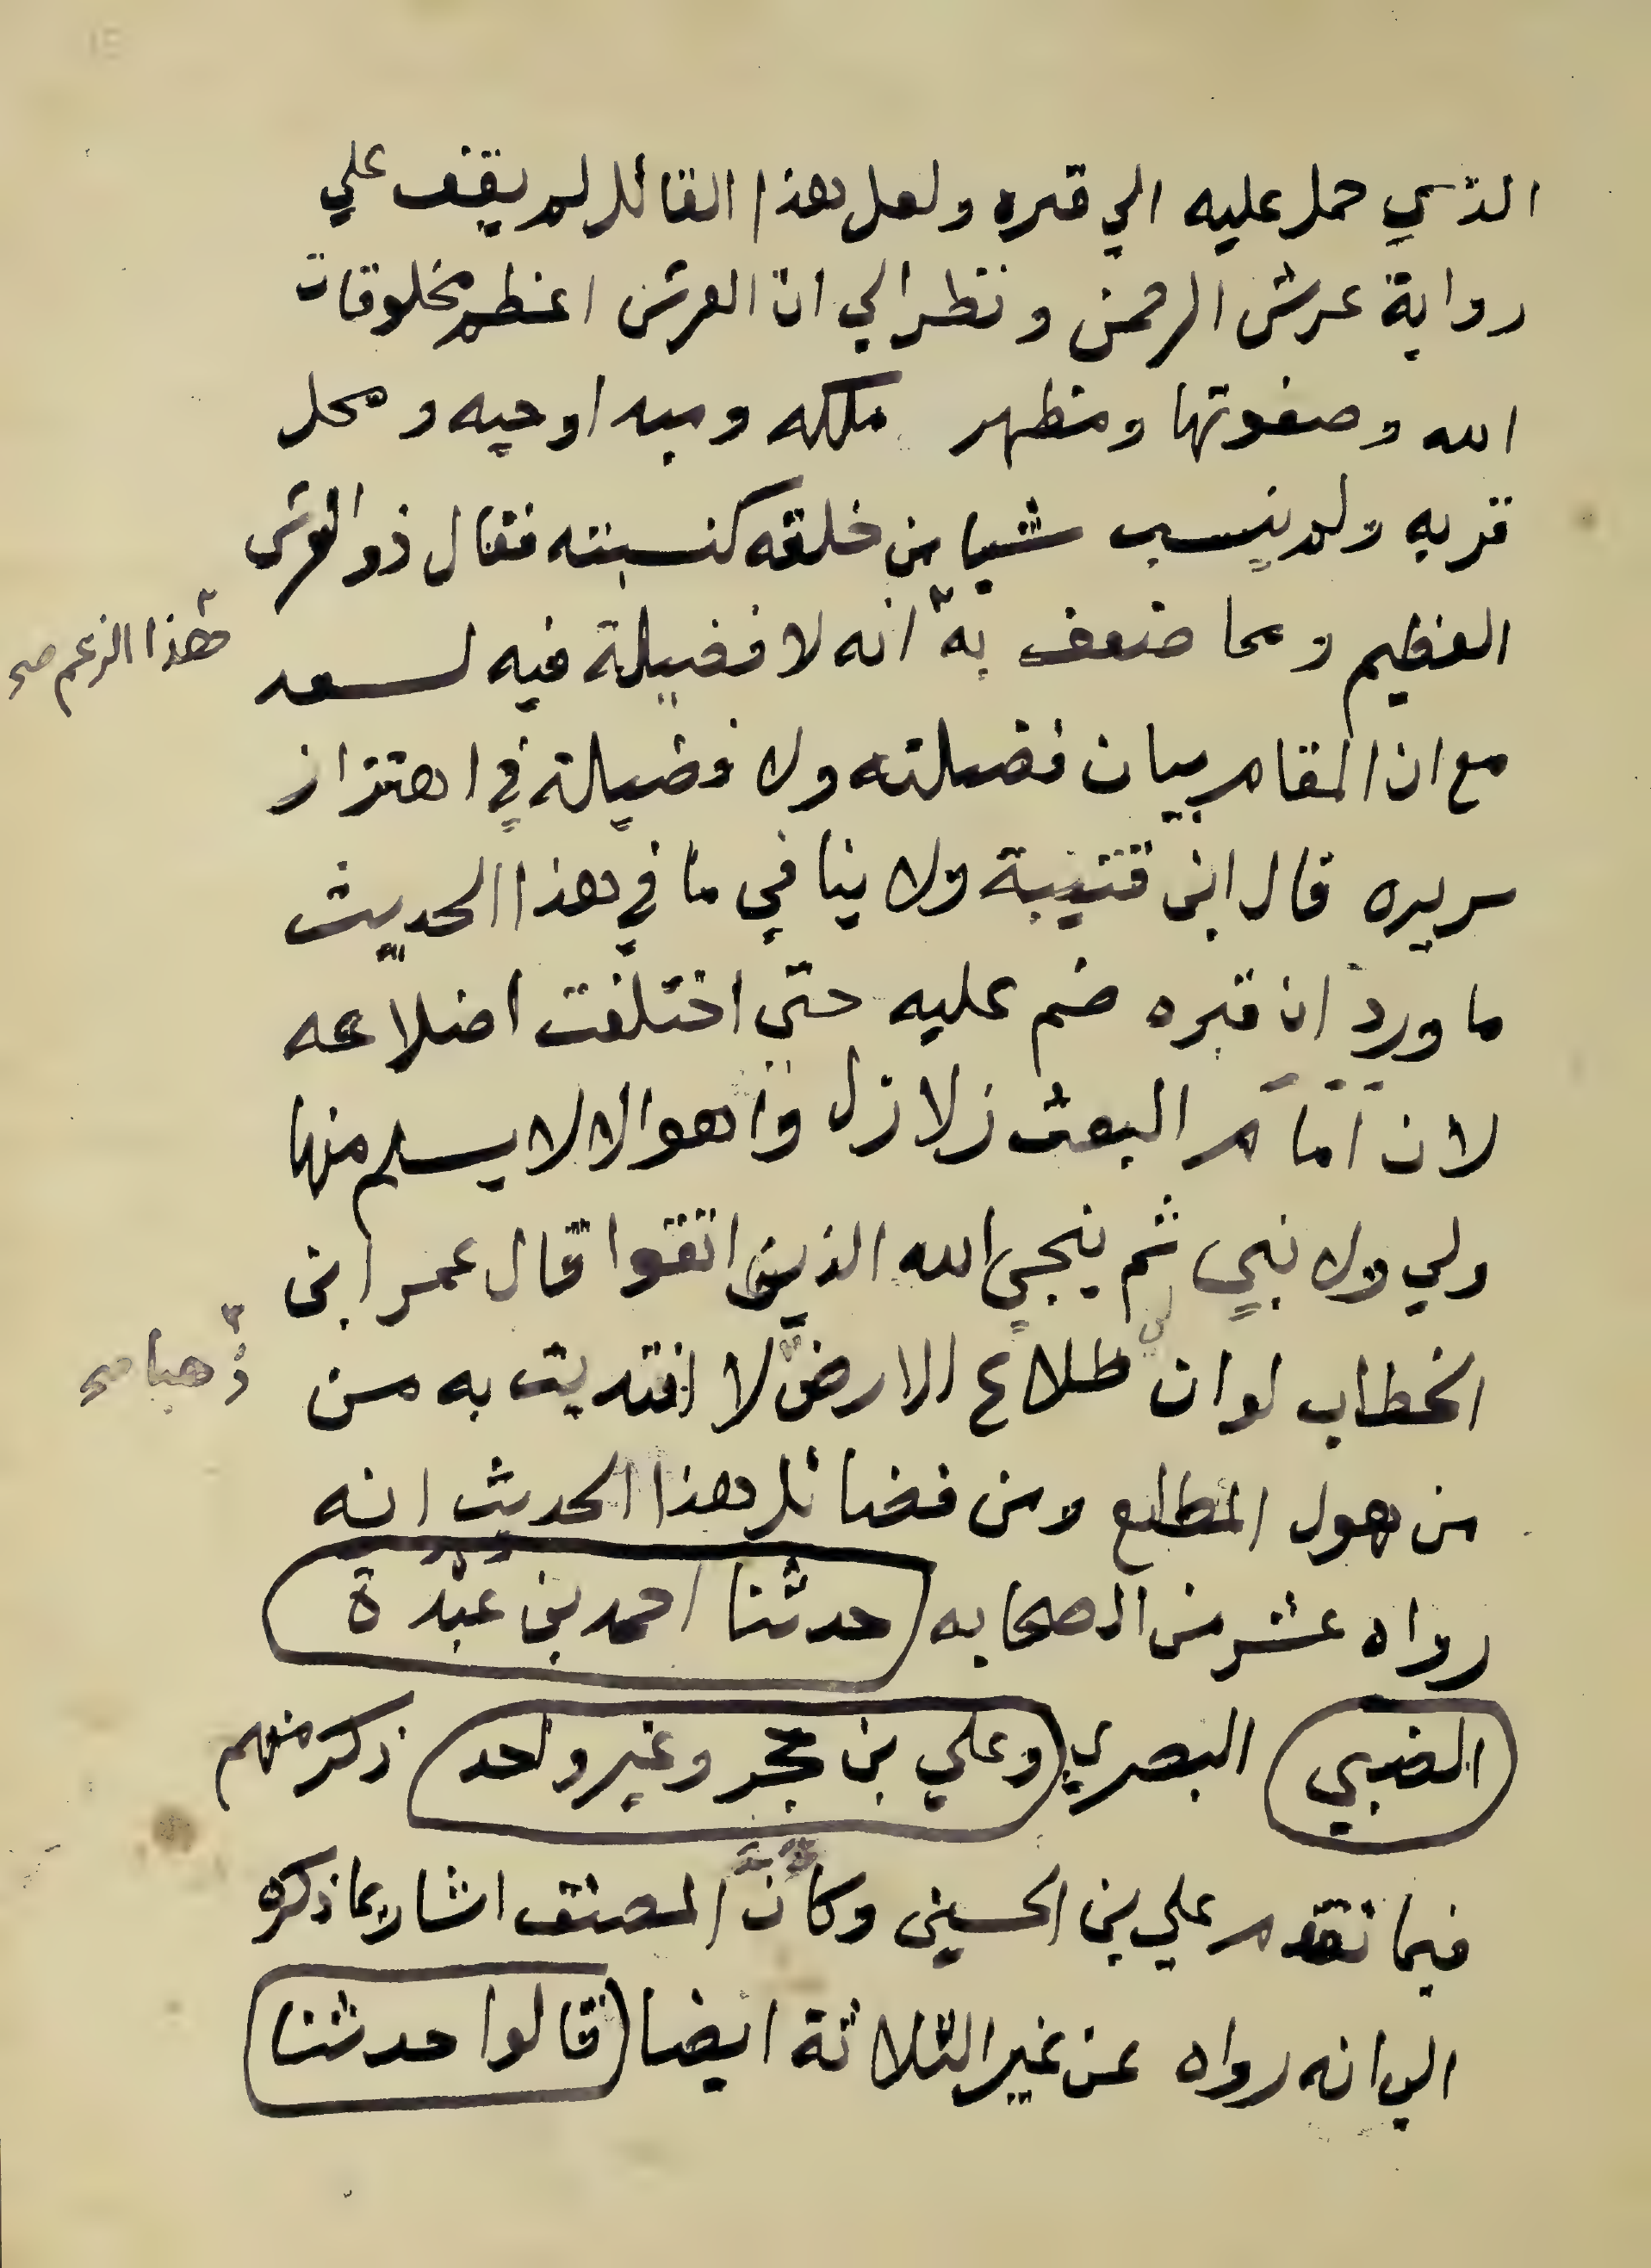 الذي حمل عليه الي قبره ولعل هذا القائل لم يقف علي
رواية عرش الرحمن ونظر الي ان العرش اعظم مخلوقات
الله وصفوتها ومظهر ملكه ومبداوحيه ومحل
قربه ولم ينسب شيا من خلقه كنسبته فقال ذو العرش
العظيم ومما ضعف به انه لا فضيلة فيه لسعد
هذا الزعم صح
مع ان المقام بيان فضيلته ولا فضيلة في اهتزاز
سريره قال ابن قتيبة ولا ينافي ما في هذا الحديث
ما ورد ان قبره ضم عليه حتي اختلفت اضلاعه
لان امام البعث زلازل واهوالا لا يسلم منها
ولي ولا نبي ثم ينجي الله الذين اتقوا قال عمر ابن
الخطاب لو ان لي طلاع الارض لا افتديت به من
ذهبا صح
من هول المطلع ومن فضائل هذا الحديث انه
رواه عشر من الصحابه حدثنا احمد بن عبدة
الضبي البصري وعلي بن حجر وغير واحد ذكر منهم
فيما تقدم علي بن الحسين وكان المصنف اشار بما ذكره
الي انه رواه عن غير الثلاثة ايضا قالوا حدثنا